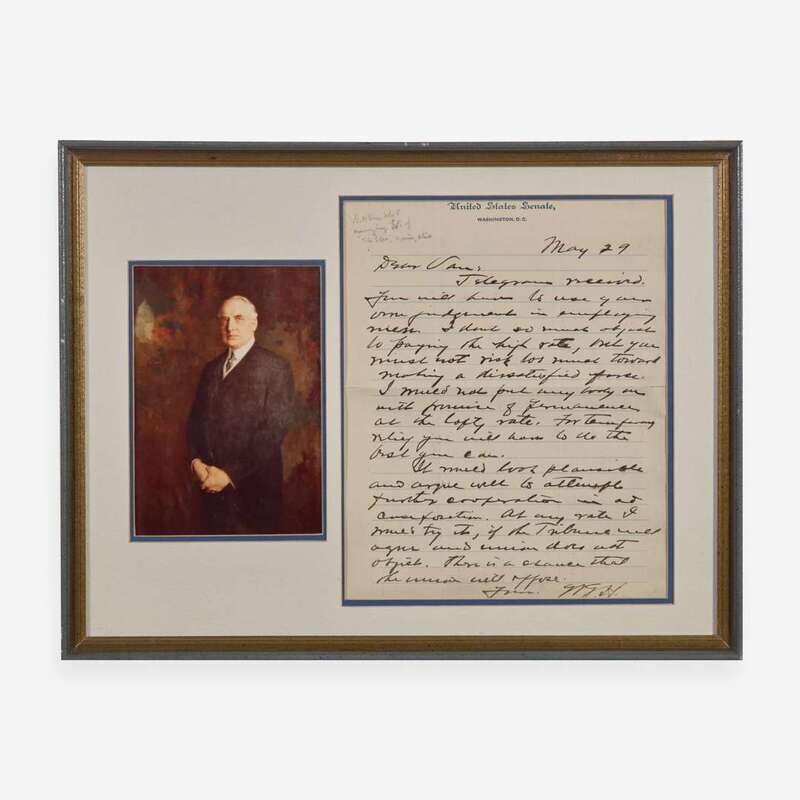 United States Senate,
WASHINGTON, D.C.
May 29
Dear Van:
Telegram received.
You will have to use your
own judgment in employing
men. I dont so much object
to paying the high rate, but you
must not risk too much toward
making a dissatisfied force.
I would not put any body on
with promise of permanence
at the lofty rate. For temporary
relief you will have to do the
best you can.
It would look plausible
and argue well to attempt
further cooperation in ad
composition. At any rate I
would try it, if the Tribune will
agree and union does not
object. There is a chance that
the union will oppose.
Yours. W.G.H.